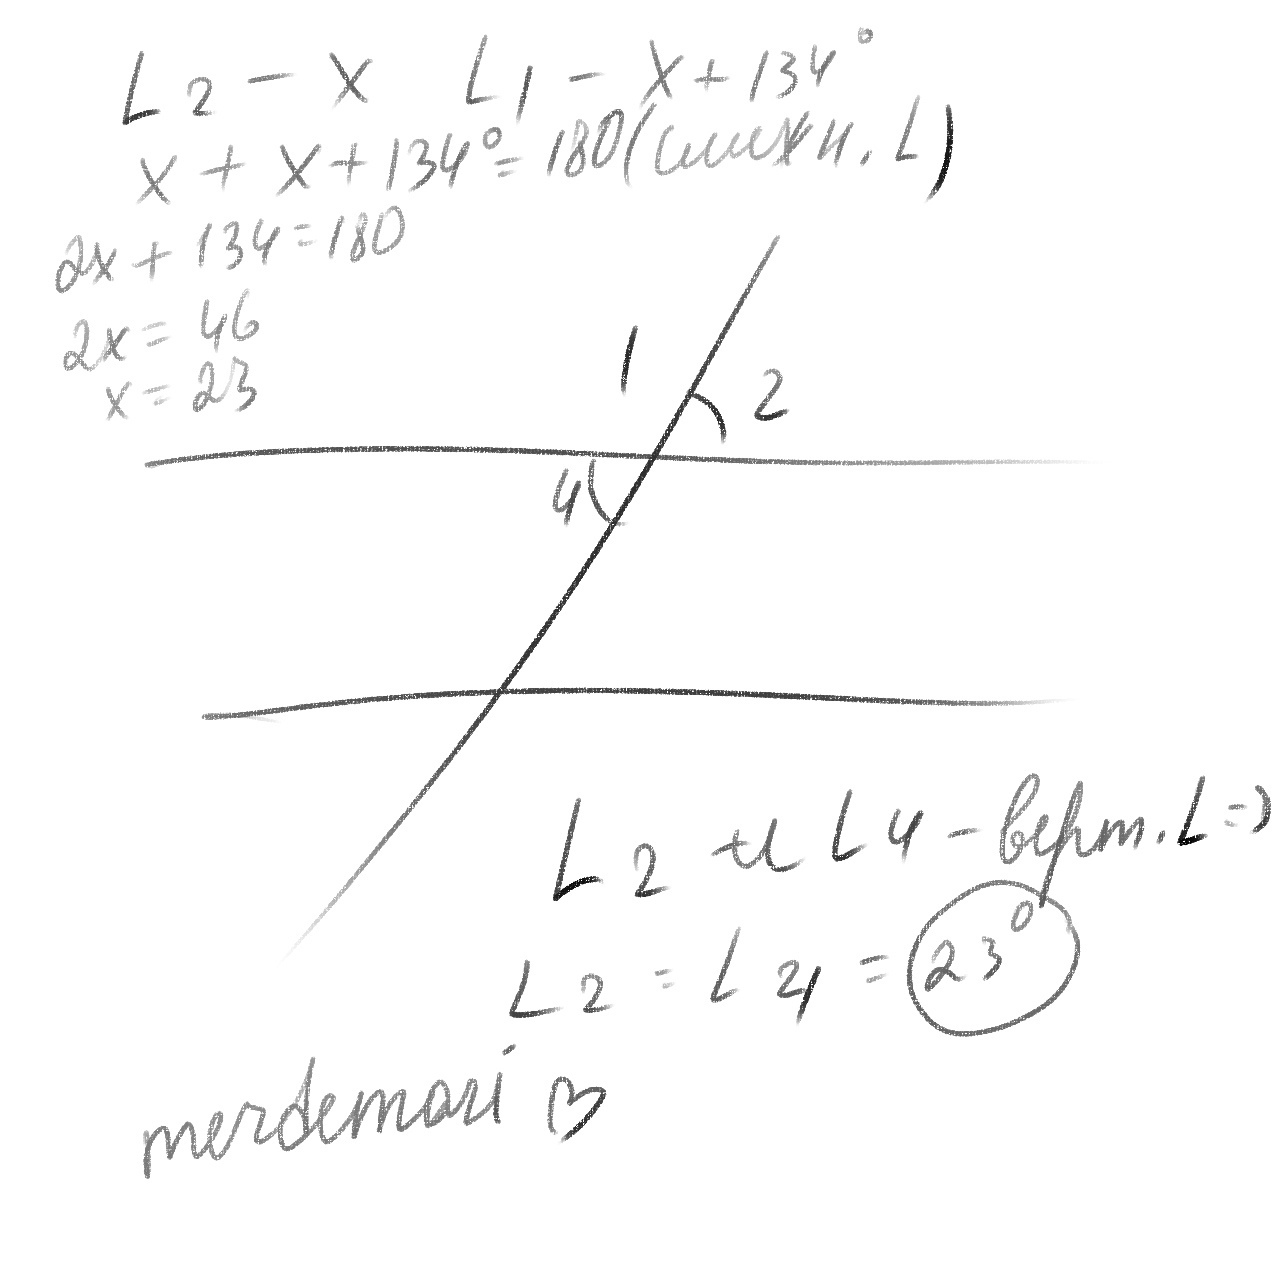 ∠2 – x ∠1 – x + 134°
x + x + 134° = 180 (смежн. ∠)
2x + 134 = 180
2x = 46
x = 23
1
2
4
∠2 и ∠4 – верт. ∠ =>
∠2 = ∠4 = 23°
merdemasi